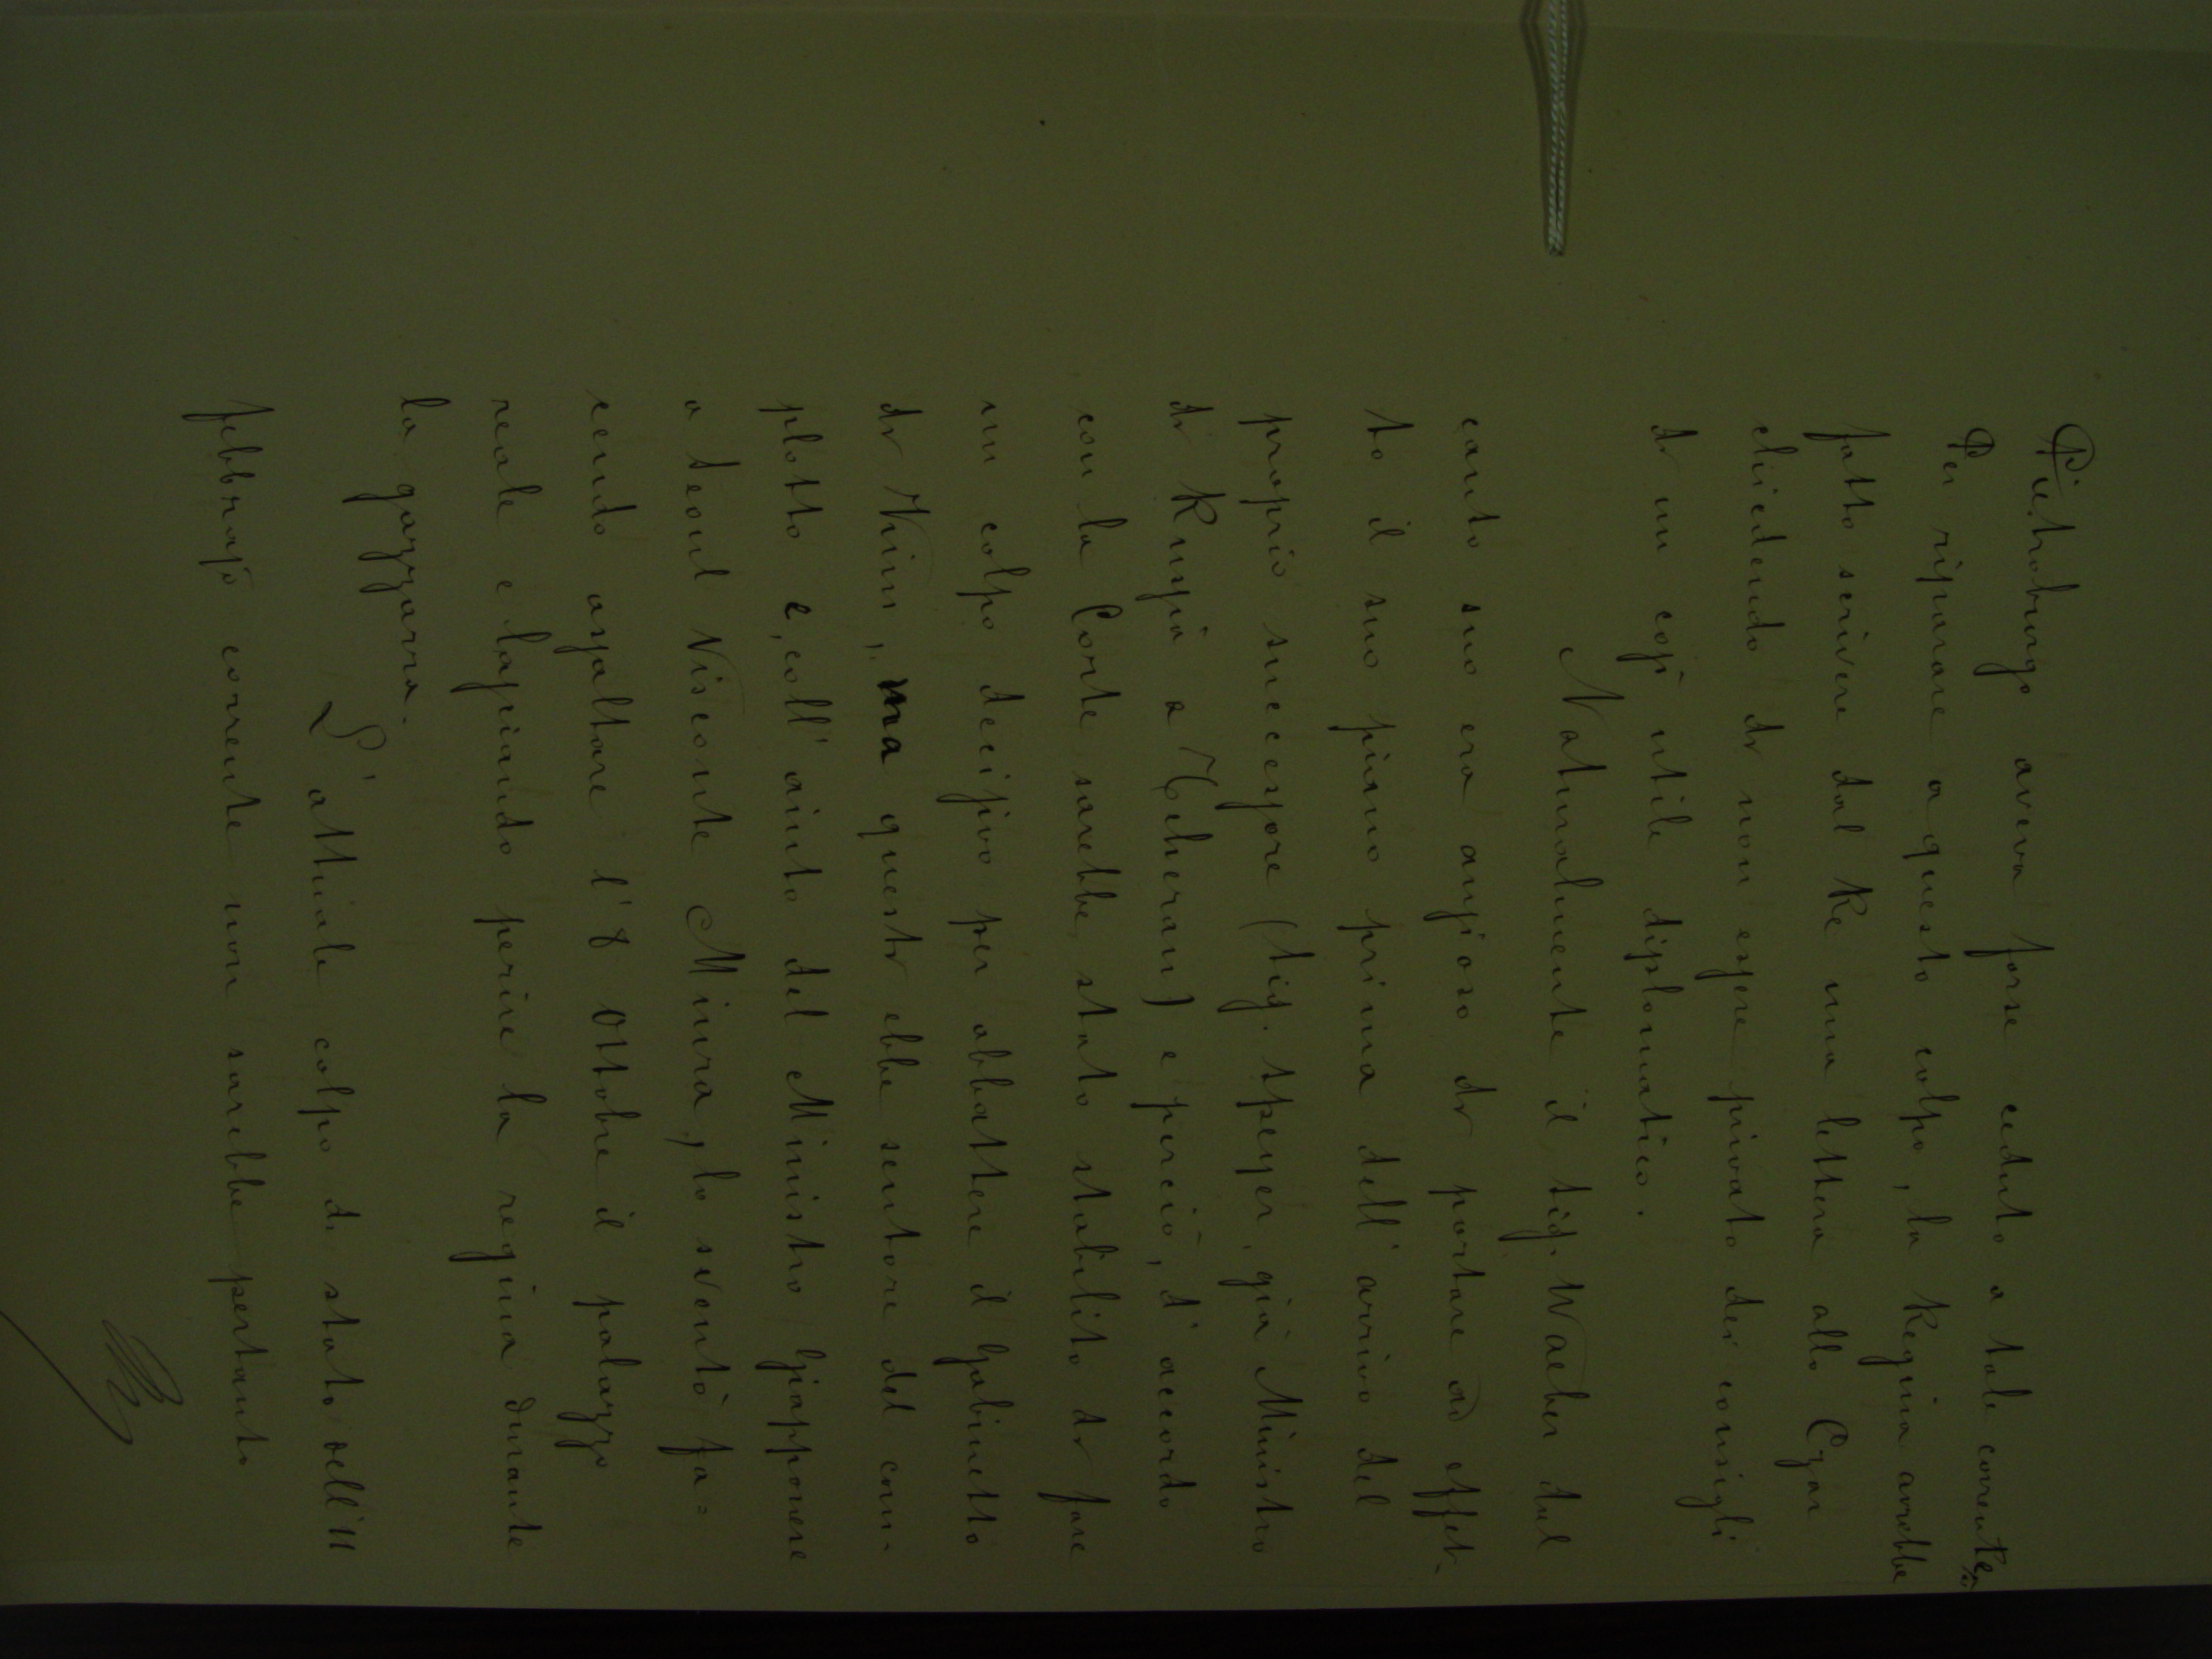 Pietroburgo aveva forse ceduto a tale corrente
Per riparare a questo colpo, la Regina avrebbe
fatto scrivere dal Re una lettera allo Czar
chiedendo di non essere privato dei consigli
di un così utile diplomatico.
Naturalmente il Sig. Waeber dal
canto suo era ansioso di portare ad effet-
to il suo piano prima dell'arrivo del
proprio successore (Sig. Speyer, già Ministro
di Russia a Teheran) e perciò, d'accordo
con la Corte sarebbe stato stabilito di fare
un colpo decisivo per abbattere il Gabinetto
di Kim, ma questi ebbe sentore del com-
plotto e, coll'aiuto del Ministro Giapponese
a Seoul Visconte Miura, lo sventò fa=
cendo assaltare l'8 Ottobre il palazzo
reale e lasciando perire la regina durante
la gazzarra.
L'attuale colpo di stato dell'11
febbrajo corrente non sarebbe pertanto